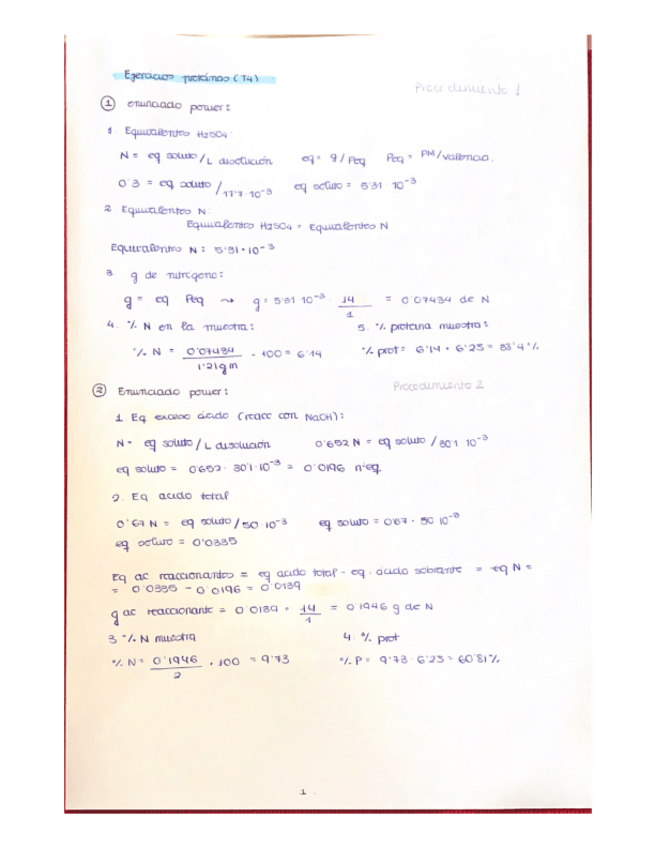 Ejercicios proteínas (T4)
Procedimiento 1
① enunciado power:
1. Equivalentes H2SO4:
N = eq soluto / L disolución    eq = g / Peq    Peq = PM / valencia.
0'3 = eq soluto / 17'7 · 10⁻³    eq soluto = 5'31 · 10⁻³
2 Equivalentes N:
Equivalentes H2SO4 = Equivalentes N
Equivalentes N: 5'31 · 10⁻³
3. g de nitrógeno:
g = eq Peq ⇝ g = 5'31 10⁻³ · 14/1 = 0'07434 de N
4. % N en la muestra:    5. % proteina muestra:
% N = 0'07434/1'21gm · 100 = 6'14    % prot = 6'14 · 6'25 = 38'4 %
② Enunciado power:    Procedimiento 2
1. Eq exceso ácido (reacc con NaOH):
N = eq soluto / L disolución    0'652 N = eq soluto / 30'1 10⁻³
eq soluto = 0'652 · 30'1 · 10⁻³ = 0'0196 nºeq
2. Eq acido total
0'67 N = eq soluto / 50 · 10⁻³    eq soluto = 0'67 · 50 10⁻³
eq soluto = 0'0335
Eq ac reaccionantes = eq acido total - eq. ácido sobrante = eq N =
= 0'0335 - 0'0196 = 0'0139
g ac reaccionante = 0'0139 · 14/1 = 0'1946 g de N
3 % N muestra    4. % prot
% N = 0'1946/2 · 100 = 9'73    % P = 9'73 · 6'25 = 60'81 %
1.